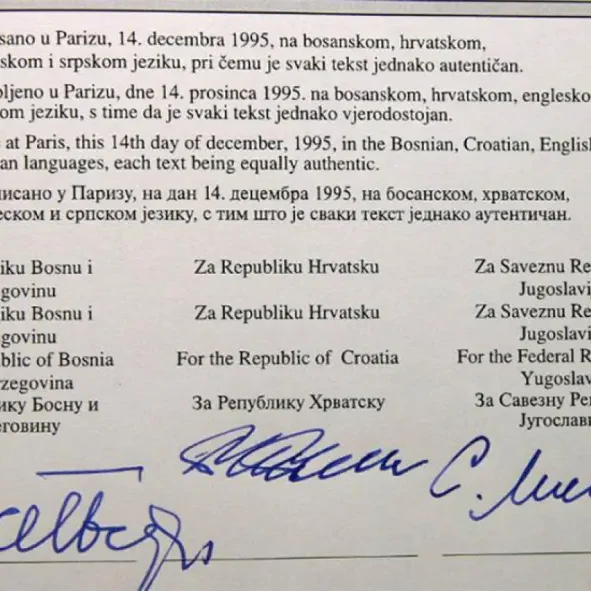 sano u Parizu, 14. decembra 1995, na bosanskom, hrvatskom,
skom i srpskom jeziku, pri čemu je svaki tekst jednako autentičan.
ljeno u Parizu, dne 14. prosinca 1995. na bosanskom, hrvatskom, englesko
om jeziku, s time da je svaki tekst jednako vjerodostojan.
at Paris, this 14th day of december, 1995, in the Bosnian, Croatian, English
an languages, each text being equally authentic.
писано у Паризу, на дан 14. децембра 1995, на босанском, хрватском,
еском и српском језику, с тим што је сваки текст једнако аутентичан.
iku Bosnu i
govinu
iku Bosnu i
govinu
blic of Bosnia
rzegovina
ику Босну и
еговину
Za Republiku Hrvatsku
Za Republiku Hrvatsku
For the Republic of Croatia
За Републику Хрватску
Za Saveznu Re
Jugoslavi
Za Saveznu Re
Jugoslavi
For the Federal R
Yugoslav
За Савезну Реп
Југослави